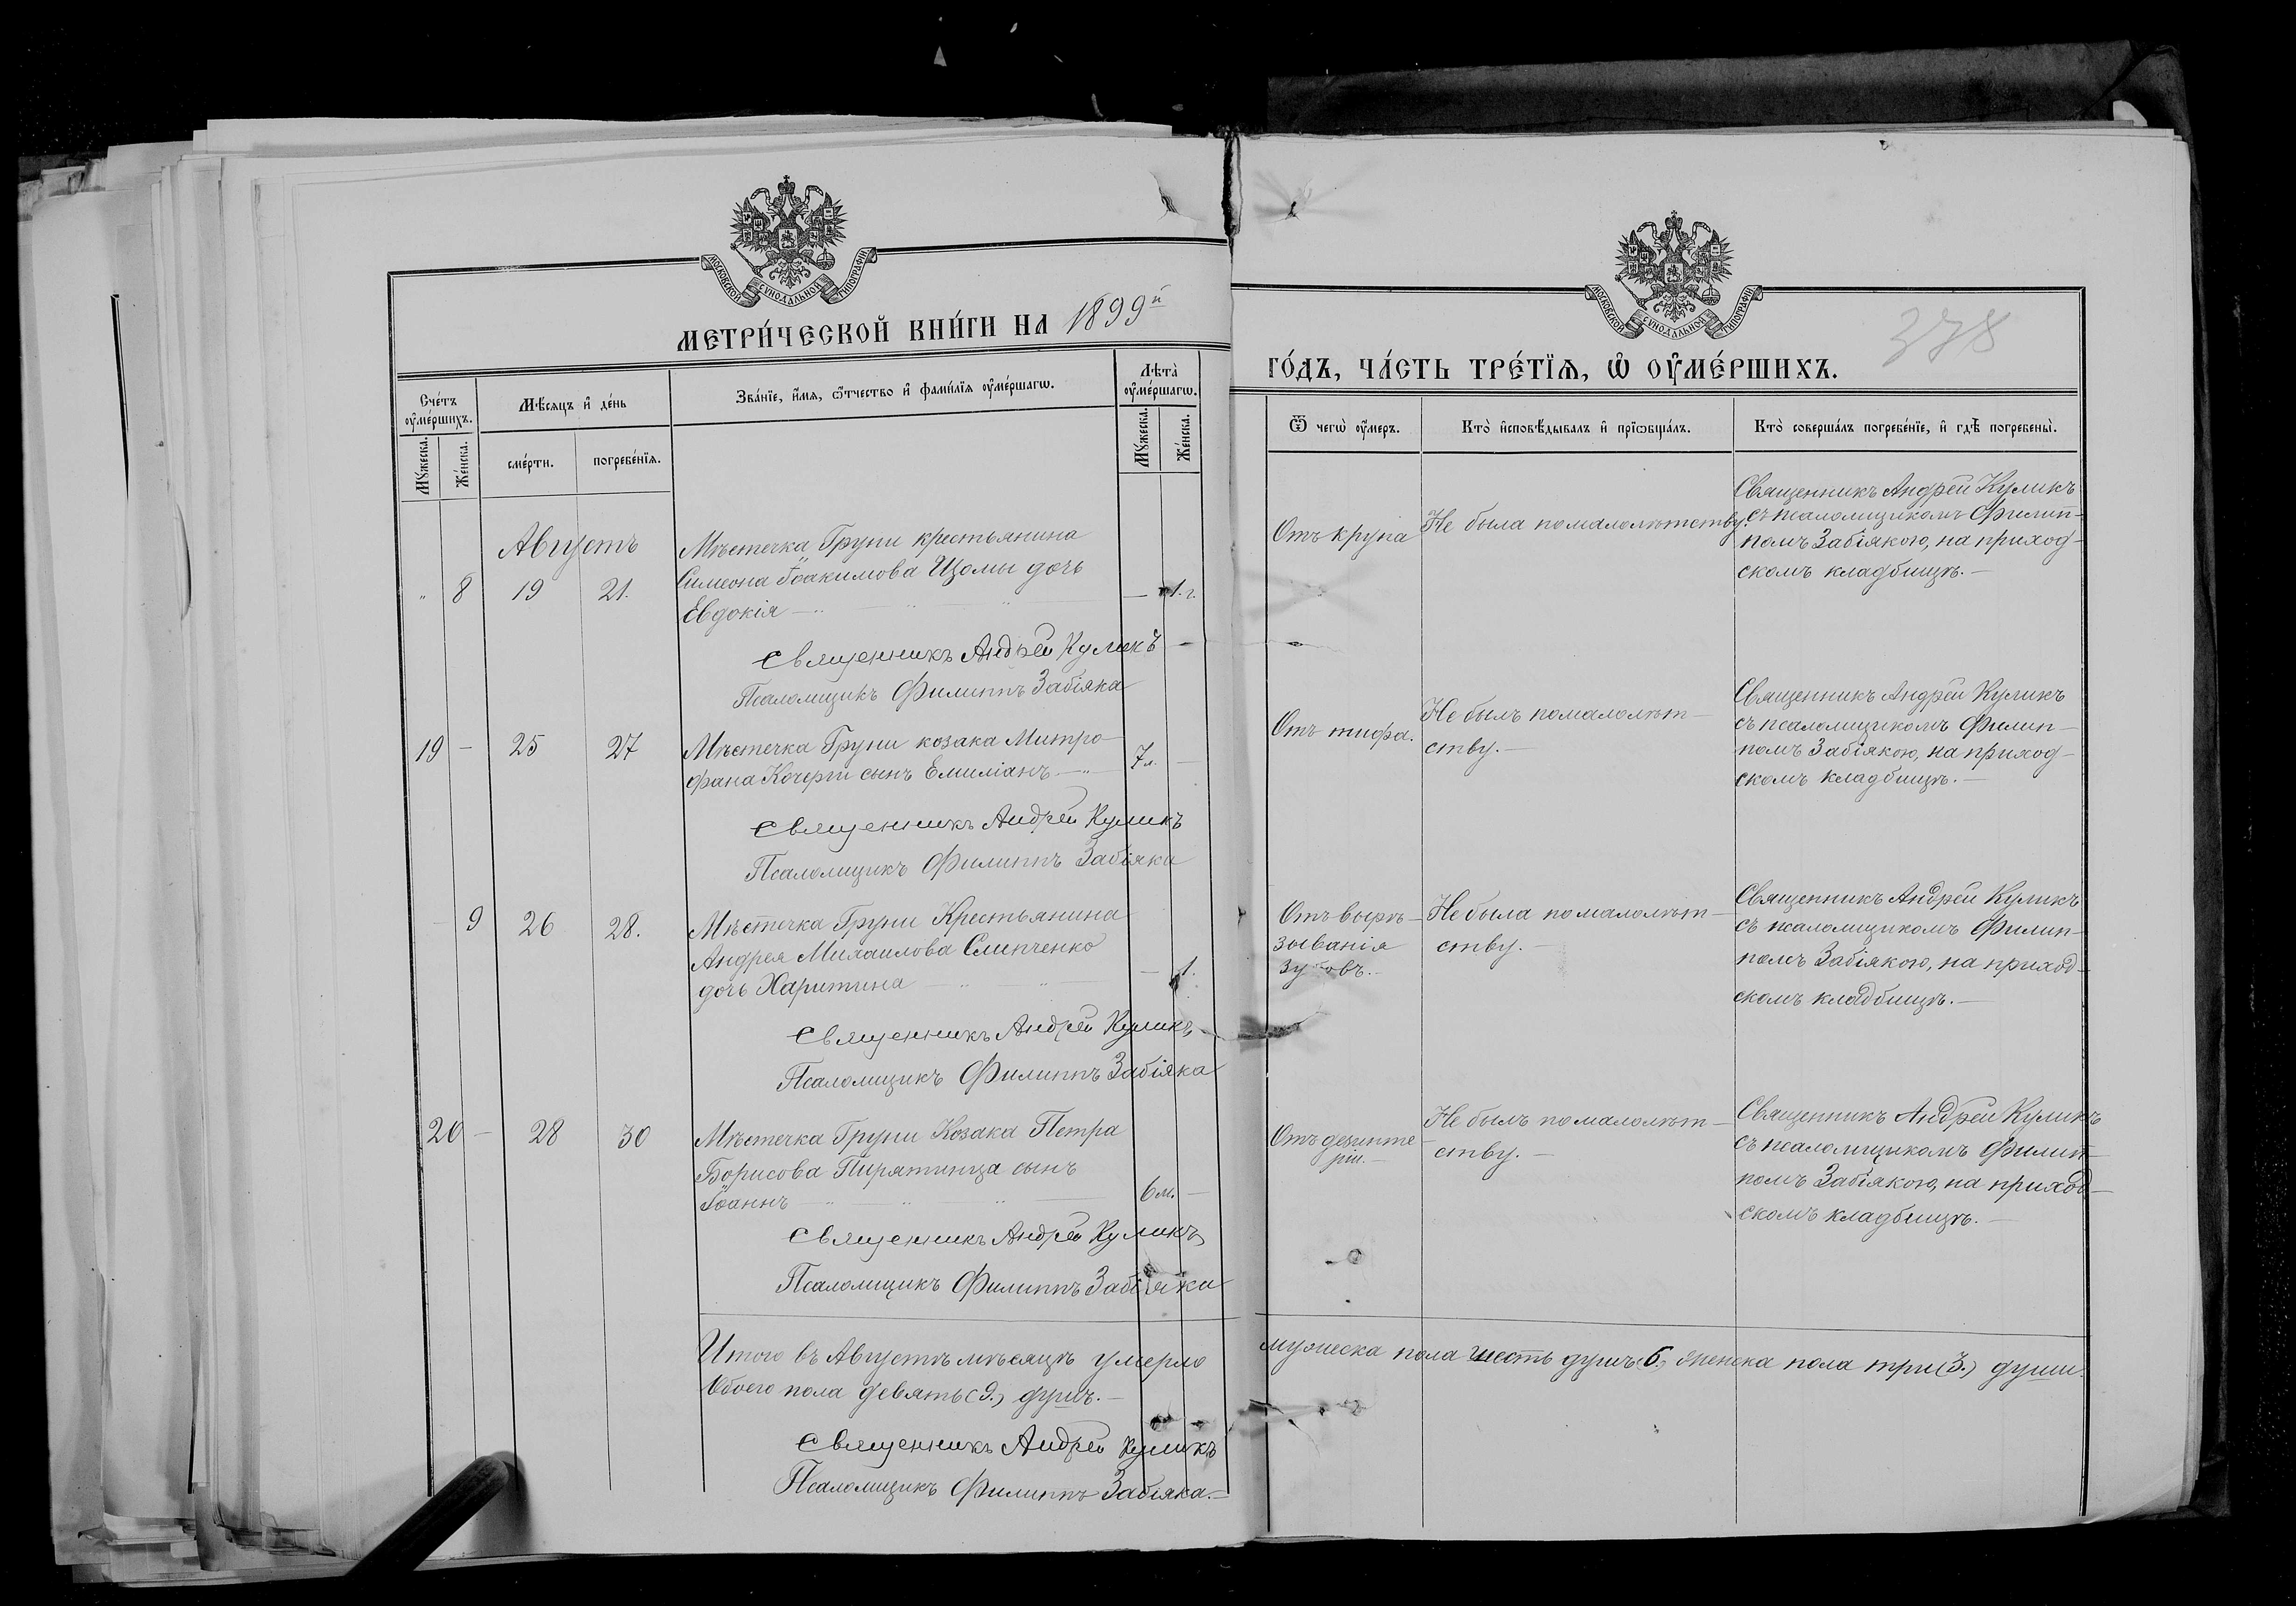 МОСКОВСКОЙ СѴНОДАЛЬНОЙ ТИПОГРАФІИ
МЕТРИ́ЧЕСКОЙ КНИ́ГИ НА 1899й
Сче́тъ оу҆ме́ршихъ.
Мѣ́сяцъ и҆ де́нь
Зва́нїе, и҆́мѧ, ѿтчество и҆ фами́лїѧ оу҆ме́ршагѡ.
Лѣта̀ оу҆ме́ршагѡ.
Мꙋ́жеска.
Же́нска.
сме́рти.
погребе́нїѧ.
Мꙋ́жеска.
Же́нска.
Августъ
" 8 19 21.
Мѣстечка Груни крестьянина
Симеона Іоакимова Щомы дочь
Евдокія — " — " — " — — 1. г.
Священникъ Андрей Куликъ —
Псаломщикъ Филиппъ Забіяка
19 — 25 27
Мѣстечка Груни козака Митро-
фана Кочерги сынъ Емиліанъ — " — 7 л. —
Священникъ Андрей Куликъ
Псаломщикъ Филиппъ Забіяка
— 9 26 28.
Мѣстечка Груни Крестьянина
Андрея Михаилова Слипченко
дочь Харитина — " — " — — 1.
Священникъ Андрей Куликъ
Псаломщикъ Филиппъ Забіяка
20 — 28 30
Мѣстечка Груни Козака Петра
Борисова Пирятинца сынъ
Іоаннъ — " — " — " — 6 м. —
Священникъ Андрей Куликъ
Псаломщикъ Филиппъ Забіяка
Итого въ Августѣ мѣсяцѣ умерло
Обоего пола девять (9.) душъ. —
Священникъ Андрей Куликъ
Псаломщикъ Филиппъ Забіяка. —
МОСКОВСКОЙ СѴНОДАЛЬНОЙ ТИПОГРАФІИ
378
ГО́ДЪ, ЧА́СТЬ ТРЕ́ТЇѦ, Ѡ҆ ОУ҆МЕ́РШИХЪ.
Ѿ чегѡ̀ оу҆́меръ.
Кто̀ и҆сповѣ́дывалъ и҆ прїѡбща́лъ.
Кто̀ соверша́лъ погребе́нїе, и҆ гдѣ̀ погребены̀.
Отъ крупа
Не была по малолѣтству
Священникъ Андрей Куликъ
съ псаломщикомъ Филип-
помъ Забіякою, на приход-
скомъ кладбищѣ. —
Отъ тифа.
Не былъ по малолѣт-
ству. —
Священникъ Андрей Куликъ
съ псаломщикомъ Филип-
помъ Забіякою, на приход-
скомъ кладбищѣ. —
Отъ вырѣ-
зыванія
зубовъ. —
Не была по малолѣт-
ству. —
Священникъ Андрей Куликъ
съ псаломщикомъ Филип-
помъ Забіякою, на приход-
скомъ кладбищѣ. —
Отъ дезинте-
ріи. —
Не былъ по малолѣт-
ству. —
Священникъ Андрей Куликъ
съ псаломщикомъ Филип-
помъ Забіякою, на приход-
скомъ кладбищѣ. —
мужеска пола шесть душъ (6.) женска пола три (3.) души.